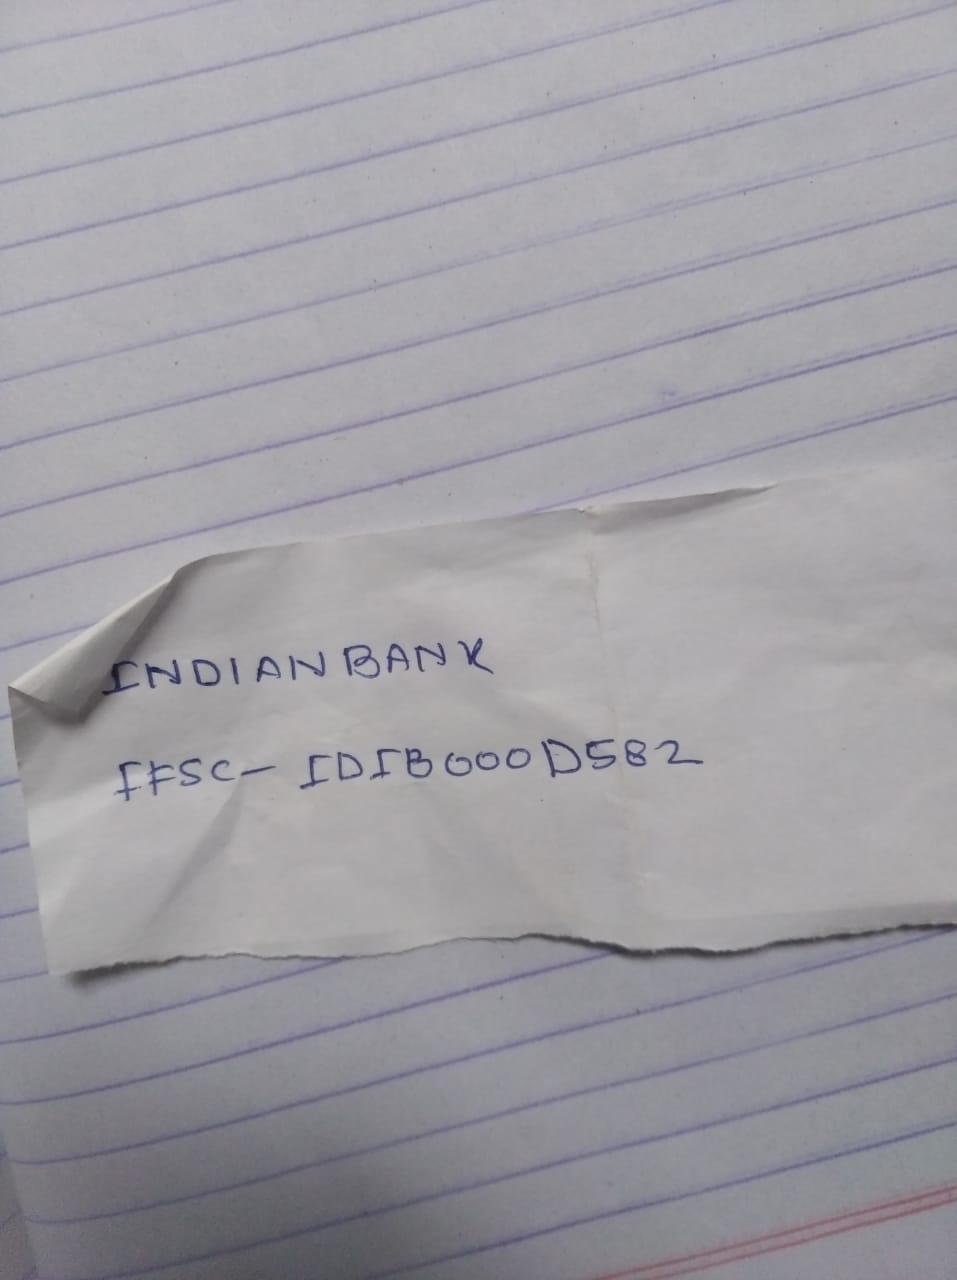 INDIAN BANK
IFSC- IDIB000D582